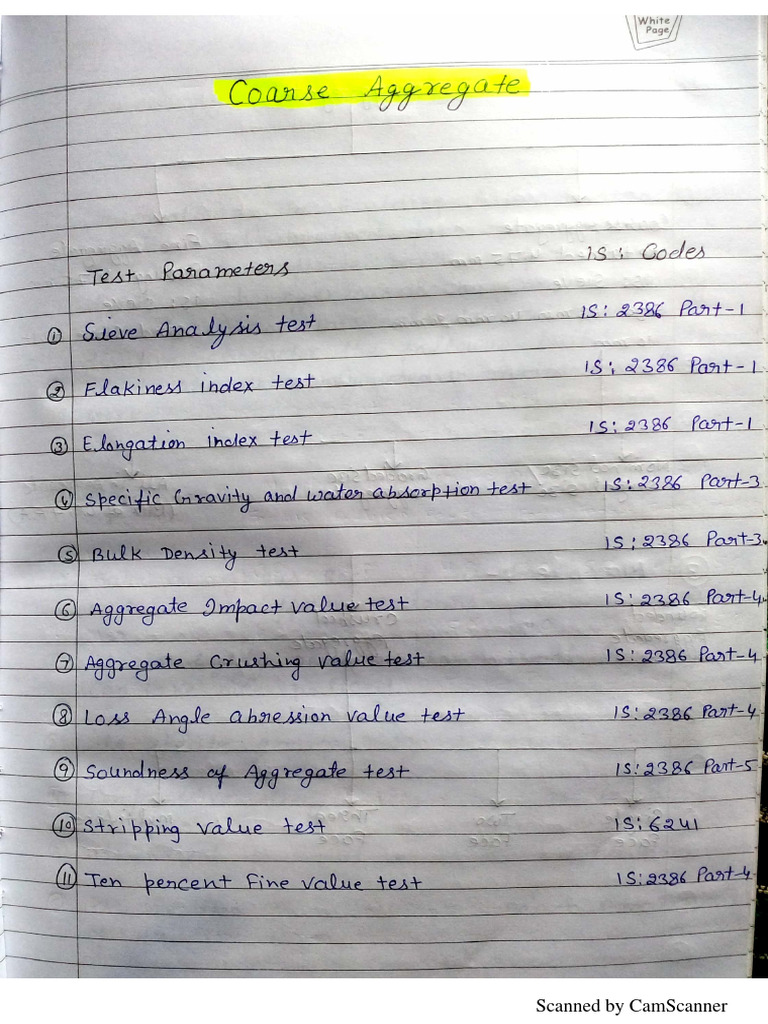 White
Page
Coarse Aggregate
Test Parameters IS: Codes
① Sieve Analysis test IS: 2386 Part-1
② Flakiness index test IS: 2386 Part-1
③ Elongation index test IS: 2386 Part-1
④ Specific Gravity and water absorption test IS: 2386 Part-3
⑤ Bulk Density test IS: 2386 Part-3.
⑥ Aggregate Impact value test IS: 2386 Part-4.
⑦ Aggregate Crushing value test IS: 2386 Part-4
⑧ Loss Angle abression value test IS: 2386 Part-4
⑨ Soundness of Aggregate test IS: 2386 Part-5
⑩ Stripping value test IS: 6241
⑪ Ten percent Fine value test IS: 2386 Part-4
Scanned by CamScanner